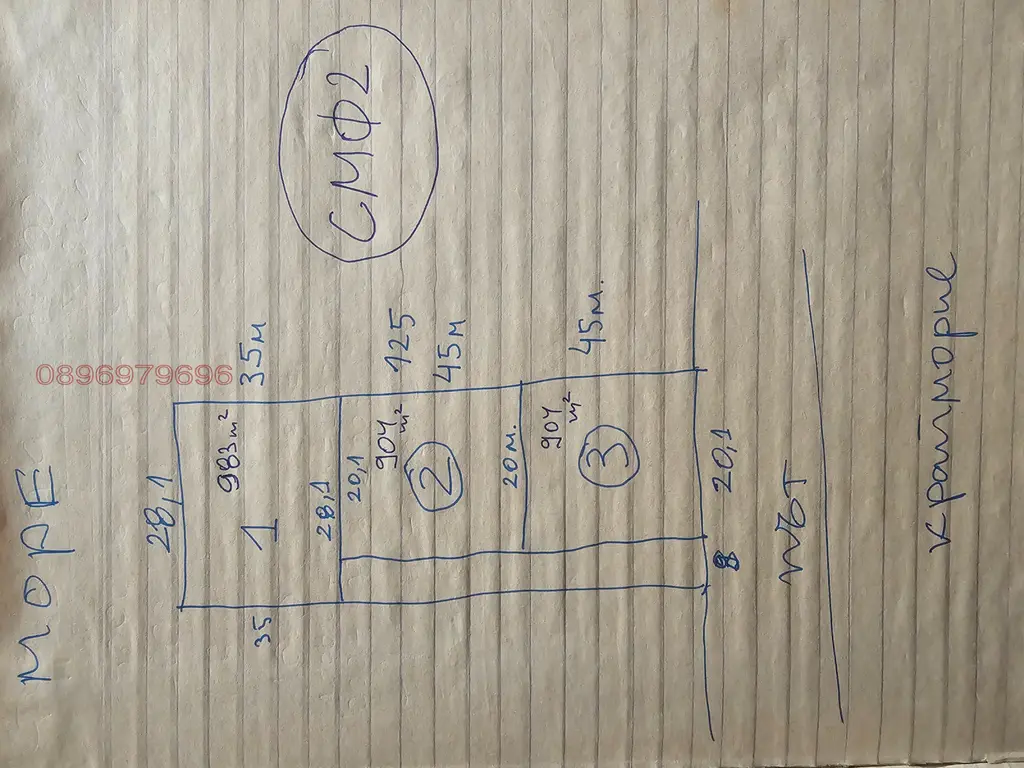 МОРЕ
0896979696
СМФ2
28,1
35
983 m²
1
35м
28,1
20,1
904 m²
2
125
45м
20м.
904 m²
3
45м.
8
20,1
път
крайморие